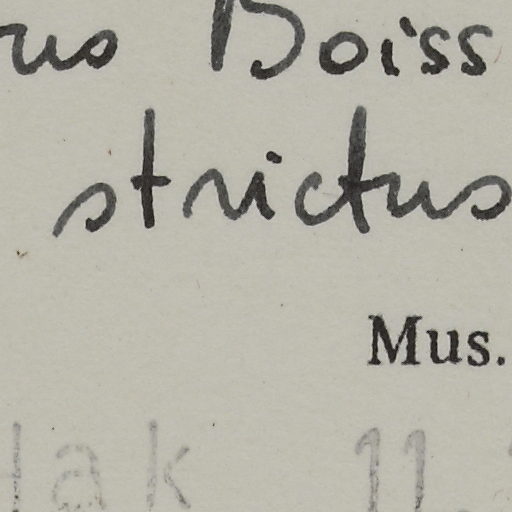 rus Boiss
strictus
Mus.
lak 11.